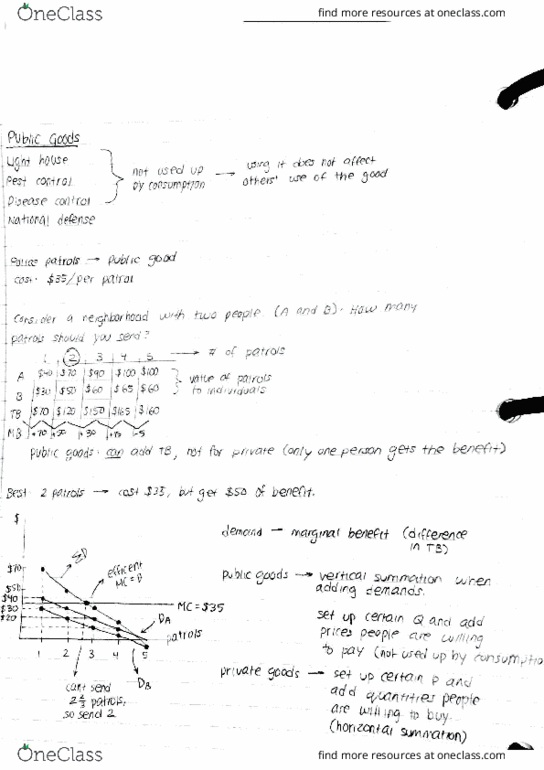 OneClass
find more resources at oneclass.com
Public Goods
Light house
Pest control
Disease control
National defense
not used up
by consumption
→ using it does not affect
others' use of the good
Police patrols → public good
cost: $35/per patrol
Consider a neighborhood with two people (A and B). How many
patrols should you send?
1 2 3 4 5 → # of patrols
A $40 $70 $90 $100 $100
B $30 $50 $60 $65 $60
TB $70 $120 $150 $165 $160
MB +70 +50 +30 +15 -5
value of patrols
to individuals
public goods: can add TB, not for private (only one person gets the benefit)
Best: 2 patrols → cost $35, but get $50 of benefit.
$
$70
$50
$40
$30
$20
efficient
MC = D
MC = $35
DA
patrols
1 2 3 4 5
DB
can't send
patrols,
so send 2
demand → marginal benefit (difference
in TB)
public goods → vertical summation when
adding demands.
set up certain Q and add
prices people are willing
to pay (not used up by consumptio
private goods → set up certain P and
add quantities people
are willing to buy.
(horizontal summation)
OneClass
find more resources at oneclass.com